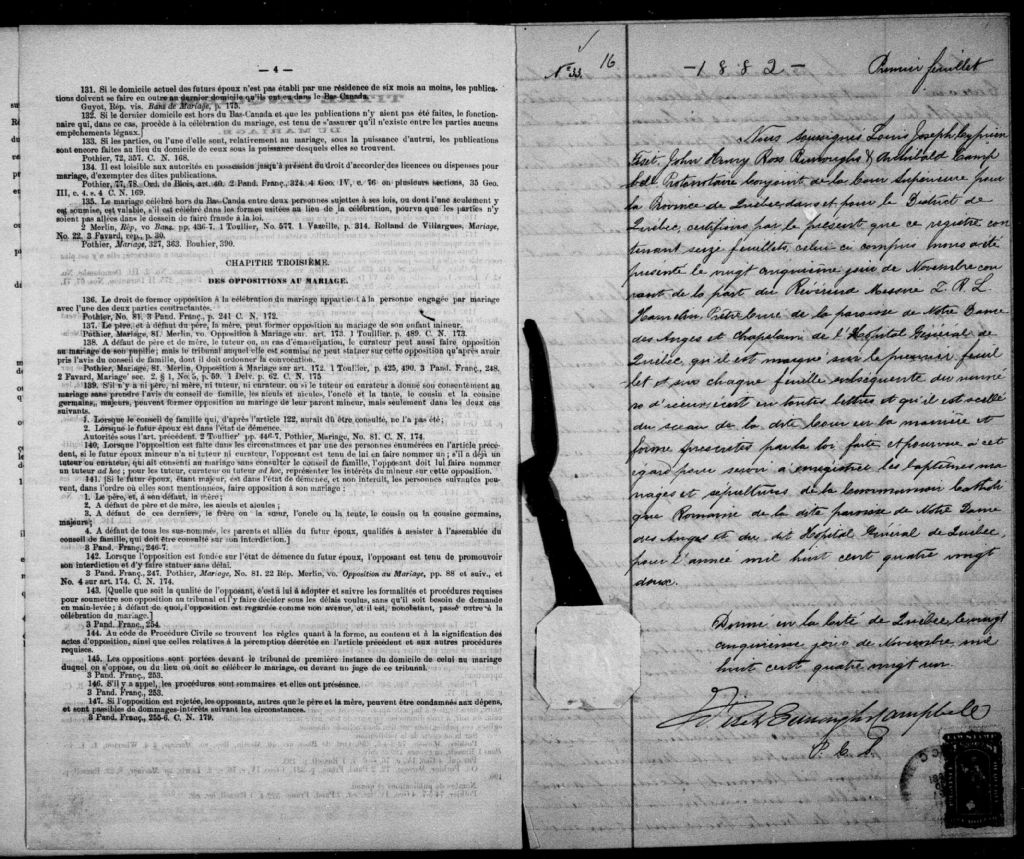 — 4 —
131. Si le domicile actuel des futurs époux n'est pas établi par une résidence de six mois au moins, les publica-
tions doivent se faire en outre au dernier domicile qu'ils ont eu dans le Bas-Canada.
Guyot, Rép. vis. Bans de Mariage, p. 175.
132. Si le dernier domicile est hors du Bas-Canada et que les publications n'y aient pas été faites, le fonctionnai-
re qui, dans ce cas, procède à la célébration du mariage, est tenu de s'assurer qu'il n'existe entre les parties aucuns
empêchements légaux.]
133. Si les parties, ou l'une d'elle sont, relativement au mariage, sous la puissance d'autrui, les publications
sont encore faites au lieu du domicile de ceux sous la puissance desquels elles se trouvent.
Pothier, 72, 357. C. N. 168.
134. Il est loisible aux autorités en possession jusqu'à présent du droit d'accorder des licences ou dispenses pour
mariage, d'exempter des dites publications.
Pothier, 77, 78. Ord. de Blois, art. 40. 2 Pand. Franç., 324. 4 Geo. IV, c. 76 en plusieurs sections, 35 Geo.
III, c. 4. s. 4 C. N. 169.
135. Le mariage célébré hors du Bas-Canda entre deux personnes sujettes à ses lois, ou dont l'une seulement y
est soumise, est valable, s'il est célébré dans les formes usitées au lieu de la célébration, pourvu que les parties n'y
soient pas allées dans le dessein de faire fraude à la loi.
2 Merlin, Rép, vo Bans. pp. 436-7. 1 Toullier, No. 577. 1 Vazeille, p. 314. Rolland de Villargues, Mariage,
No. 22. 3 Favard, rep., p. 30.
Pothier, Mariage, 327, 363. Bouhier, 390.
CHAPITRE TROISIÈME.
DES OPPOSITIONS AU MARIAGE.
136. Le droit de former opposition à la célébration du mariage appartient à la personne engagée par mariage
avec l'une des deux parties contractantes.
Pothier, No. 81. 3 Pand. Franç., p. 241 C. N. 172.
137. Le père, et à défaut du père, la mère, peut former opposition au mariage de son enfant mineur.
Pothier, Mariage, 81. Merlin, vo. Opposition à Mariage sur. art. 173. 1 Toullier. p. 489. C. N. 173.
138. A défaut de père et de mère, le tuteur ou, au cas d'émancipation, le curateur peut aussi faire opposition
au mariage de son pupille; mais le tribunal auquel elle est soumise ne peut statuer sur cette opposition qu'après avoir
pris l'avis du conseil de famille, dont il doit ordonner la convocation.
Pothier, Mariage, 81. Merlin, Opposition à Mariage sur art. 172. 1 Toullier, p. 425, 490. 3 Pand. Franç., 248.
2 Favard, Mariage sec. 2. § 1, No. 5, p. 59. 1 Delv. p. 62. C. N. 175
139. S'il n'y a ni père, ni mère, ni tuteur, ni curateur, ou si le tuteur ou curateur a donné son consentement au
mariage sans prendre l'avis du conseil de famille, les aïeuls et aïeules, l'oncle et la tante, le cousin et la cousine
germains, majeurs, peuvent former opposition au mariage de leur parent mineur, mais seulement dans les deux cas
suivants.
1. Lorsque le conseil de famille qui, d'après l'article 122, aurait dû être consulté, ne l'a pas été;
2. Lorsque le futur époux est dans l'état de démence.
Autorités sous l'art. précédent. 2 Toullier pp. 446-7, Pothier, Mariage, No. 81. C. N. 174.
140. Lorsque l'opposition est faite dans les circonstances et par une des personnes énumérées en l'article précé-
dent, si le futur époux mineur n'a ni tuteur ni curateur, l'opposant est tenu de lui en faire nommer un; s'il a déjà un
tuteur ou curateur, qui ait consenti au mariage sans consulter le conseil de famille, l'opposant doit lui faire nommer
un tuteur ad hoc; pour les tuteur, curateur ou tuteur ad hoc, représenter les intérêts du mineur sur cette opposition.
141. [Si le futur époux, étant majeur, est dans l'état de démence, et non interdit, les personnes suivantes peu-
vent, dans l'ordre où elles sont mentionnées, faire opposition à son mariage:
1. Le père, et, à son défaut, la mère;
2. A défaut de père et de mère, les aïeuls et aïeules;
3. A défaut de ces derniers, le frère ou la sœur, l'oncle ou la tente, le cousin ou la cousine germains,
majeurs;
4. A défaut de tous les sus-nommés, les parents et alliés du futur époux, qualifiés à assister à l'assemblée du
conseil de famille, qui doit être consulté sur son interdiction.]
3 Pand. Franç., 246-7.
142. Lorsque l'opposition est fondée sur l'état de démence du futur époux, l'opposant est tenu de promouvoir
son interdiction et d'y faire statuer sans délai.
3 Pand. Franç., 247. Pothier, Mariage, No. 81. 22 Rép. Merlin, vo. Opposition au Mariage, pp. 88 et suiv., et
No. 4 sur art. 174. C. N. 174.
143. [Quelle que soit la qualité de l'opposant, c'est à lui à adopter et suivre les formalités et procédures requises
pour soumettre son opposition au tribunal et l'y faire décider sous les délais voulus, sans qu'il soit besoin de demande
en main-levée; à défaut de quoi, l'opposition est regardée comme non avenue, et il est, nonobstant, passé outre à la
célébration du mariage.]
3 Pand. Franç., 254.
144. Au code de Procédure Civile se trouvent les règles quant à la forme, au contenu et à la signification des
actes d'opposition, ainsi que celles relatives à la péremption décrétée en l'article précédent et aux autres procédures
requises.
145. Les oppositions sont portées devant le tribunal de première instance du domicile de celui au mariage
duquel on s'oppose, ou du lieu où doit se célébrer le mariage, ou devant un juge de ce tribunal.
3 Pand. Franç., 253.
146. S'il y a appel, les procédures sont sommaires et elles ont préséance.
3 Pand. Franç., 253.
147. Si l'opposition est rejetée, les opposants, autres que le père et la mère, peuvent être condamnés aux dépens,
et sont passibles de dommages-intérêts suivant les circonstances.
3 Pand. Franç., 255-6. C. N. 179.
No 33. 16 — 1882 — Premier feuillet
Nous soussignés Louis Joseph Cyprien
Fiset, John Henry Ross Burroughs & Archibald Camp
bell Protonotaire Conjoint de la Cour Supérieure pour
la Province de Québec, dans et pour le District de
Québec, certifions par le présent que ce registre con
tenant seize feuillets, celui ci compris nous a été
présenté le vingt cinquième jour de Novembre cou
rant de la part du Révérend Messire L. R. L.
Hamelin Prêtre Curé de la paroisse de Notre Dame
des Anges et Chapelain de l'Hôpital Général de
Québec, qu'il est marqué sur le premier feuil
let et sur chaque feuille subséquente du numé
ro d'iceux écrit en toutes lettres et qu'il est scellé
du sceau de la dite Cour en la manière et
forme prescrites par la loi faite et pourvue à cet
égard pour servir à enregistrer les baptêmes ma
riages et sépultures de la Communion Catholi
que Romaine de la dite paroisse de Notre Dame
des Anges et du dit Hôpital Général de Québec,
pour l'année mil huit cent quatre vingt
deux.
Donné en la Cité de Québec, le vingt
cinquième jour de Novembre mil
huit cent quatre vingt un
Fiset Burroughs Campbell
P. C. S.